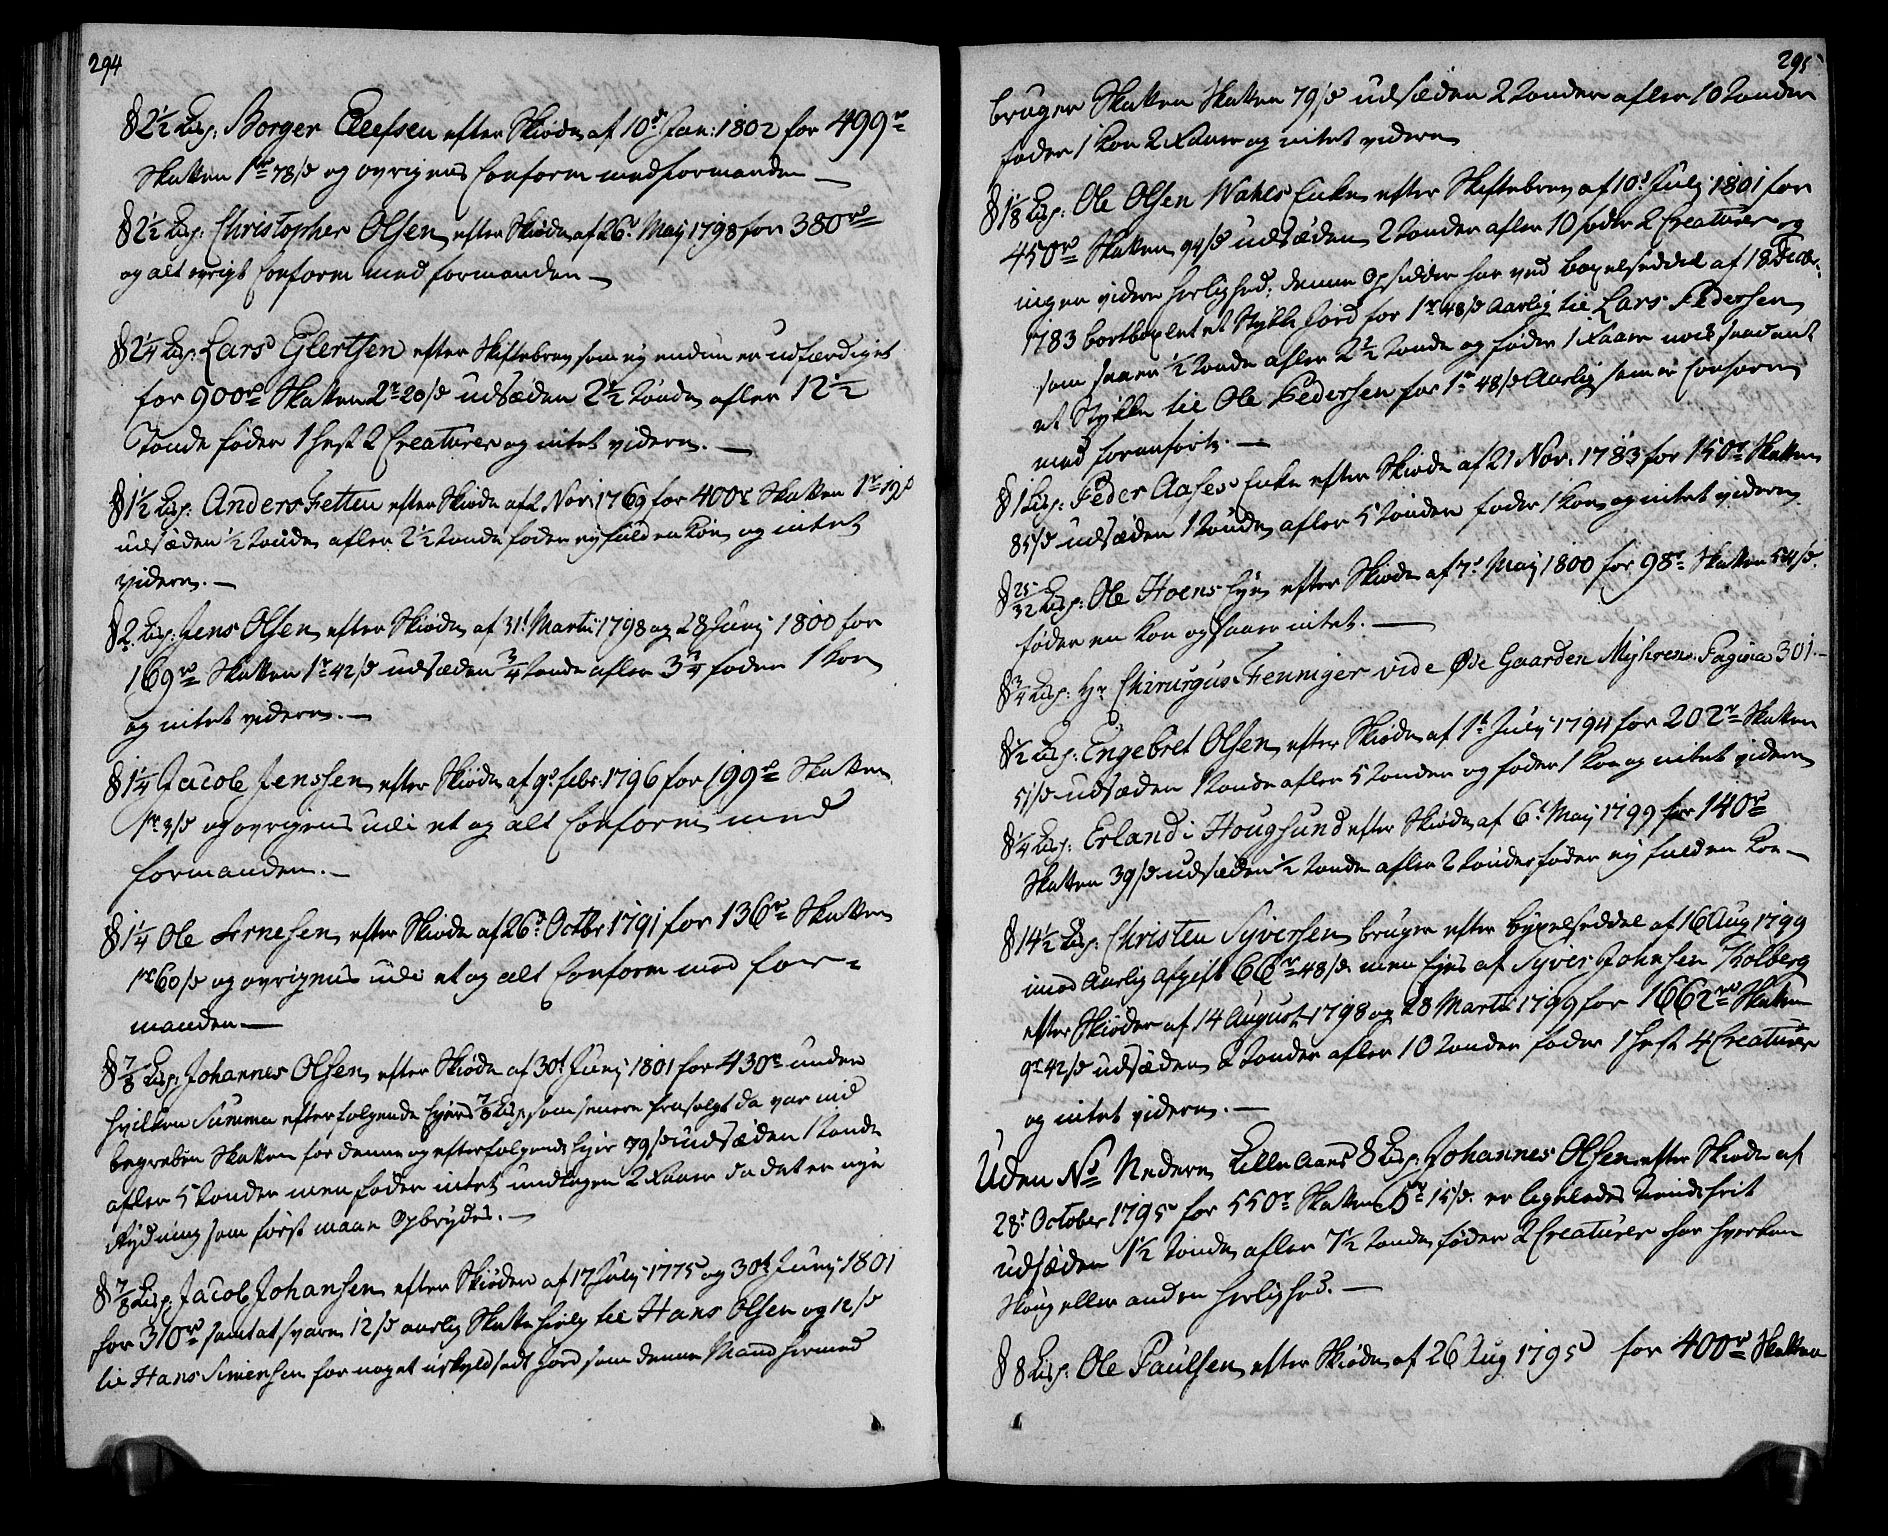 294
§ 2½ Lisp: Borger Eleefsen efter Skiøde af 10de Jan: 1802 for 499rd
Skatten 1rd 78s og øvrigens Conform med formanden —
§ 2½ Lisp: Christopher Olsen efter Skiøde af 26d May 1798 for 380rd
og alt øvrigt Conform med formanden —
§ 2¼ Lisp: Lars Glertsen efter Skiftebrev som ej endnu er udfærdiget
for 900rd Skatten 2r 20s udsæden 2½ tønde afler 12½
Tønde føder 1 hest 2 Creaturer og intet videre. —
§ 1½ Lisp: Anders Fetten efter Skiøde af 2 Nov: 1769 for 400r Skatten 1r 19s
udsæden ½ tønde afler 2½ tønde føder ej fuld en Koe og intet
videre. —
§ 2 Lisp: Jens Olsen efter Skiøde af 31t Martii 1798 og 28 Junj 1800 for
169rd Skatten 1r 42s udsæden ¾ tønde afler 3¾ føder 1 Koe
og intet videre. —
§ 1¼ Jacob Jenssen efter Skiøde af 9d febr: 1796 for 199rd Skatten
1rd 3s og øvrigens udi et og alt Conform med
formanden. —
§ 1¼ Ole Arnesen efter Skiøde af 26d Octbr 1791 for 136rd Skatten
1rd 60s og øvrigens udi et og alt Conform med for-
manden —
§ ⅞ Lisp: Johannes Olsen efter Skiøde af 30t Junj 1801 for 430rd under
hvilken Summa efterfølgende Ejers ⅞ Lisp, som senere frasolgt da var ind
begreben Skatten for denne og efterfølgende Ejer 79s udsæden 1 tønde
afler 5 tønder men føder intet undtagen 2 Faaer da det er nye
Rydning som først maae Opbrydes. —
§ ⅞ Lisp: Jacob Johansen efter Skiøder af 17 Julj 1775 og 30t Junj 1801
for 310rd samt at svare 12s aarlig Skatte hielp til Hans Olsen og 12s
til Hans Simensen for noget uskyldsadt Jord som denne Mand hermed
295
bruger Skatten Skatten 79s udsæden 2 tønder afler 10 tønder
føder 1 Koe 2 Faaer og intet videre
§ 1⅛ Lisp: Ole Olsen Wahls Enke efter Skiftebrev af 10d Julj 1801 for
450rd Skatten 94s udsæden 2 tønder afler 10 føder 2 Creaturer og
ingen videre herlighed; denne Opsidder har ved bøxelseddel af 18 Decbr:
1783 bortbøxlet et Stykke Jord for 1r 48s Aarlig til Lars Pedersen
som saaer ½ tønde afler 2½ tønde og føder 1 Faaer nock saadant
et Stykke til Ole Pedersen for 1r 48s Aarlig som er Conform
med foranførte. —
§ 1 Lisp: Peder Aases Enke efter Skiøde af 21 Nov: 1783 for 150r Skatten
85s udsæden 1 tønde afler 5 tønder føder 1 Koe og intet videre
§ 25/32 Lisp: Ole Hoens Eje efter Skiøde af 7d May 1800 for 98r Skatten 54s.
føder en Koe og saaer intet. —
§ ¾ Lisp: Hr Chirurgus Fenniger vide Øde Gaarden Myhren Pagina 301 —
§ ½ Lisp: Engebret Olsen efter Skiøde af 1t Julj 1794 for 202r Skatten
51s udsæden 1 tønde afler 5 tønder og føder 1 Koe og intet videre
§ ¼ Lisp: Erland i Hougsund efter Skiøde af 6t May 1799 for 140rd
Skatten 39s udsæden ½ tønde afler 2 tønder føder ej fuld en Koe —
§ 14½ Lisp: Christen Syversen bruger efter bøxelseddel af 16 Aug 1799
imod Aarlig Afgift 66r 48s men Ejes af Syver Johnsen Kolberg
efter Skiøder af 14 August 1798 og 28 Martii 1799 for 1662rd Skatten
9rd 42s udsæden 2 tønder afler 10 tønder føder 1 hest 4 Creaturer
og intet videre. —
Uden No Nedern Lille Aaes 8 Lisp: Johannes Olsen efter Skiøde af
28d October 1795 for 550r Skatten 5r 15s. er ligeledes tiendefrit
udsæden 1½ tønde afler 7½ tønde føder 2 Creaturer har hverken
Skoug eller anden herlighed. —
§ 8 Lisp: Ole Paulsen efter Skiøde af 26 Aug 1795 for 400rd Skatten